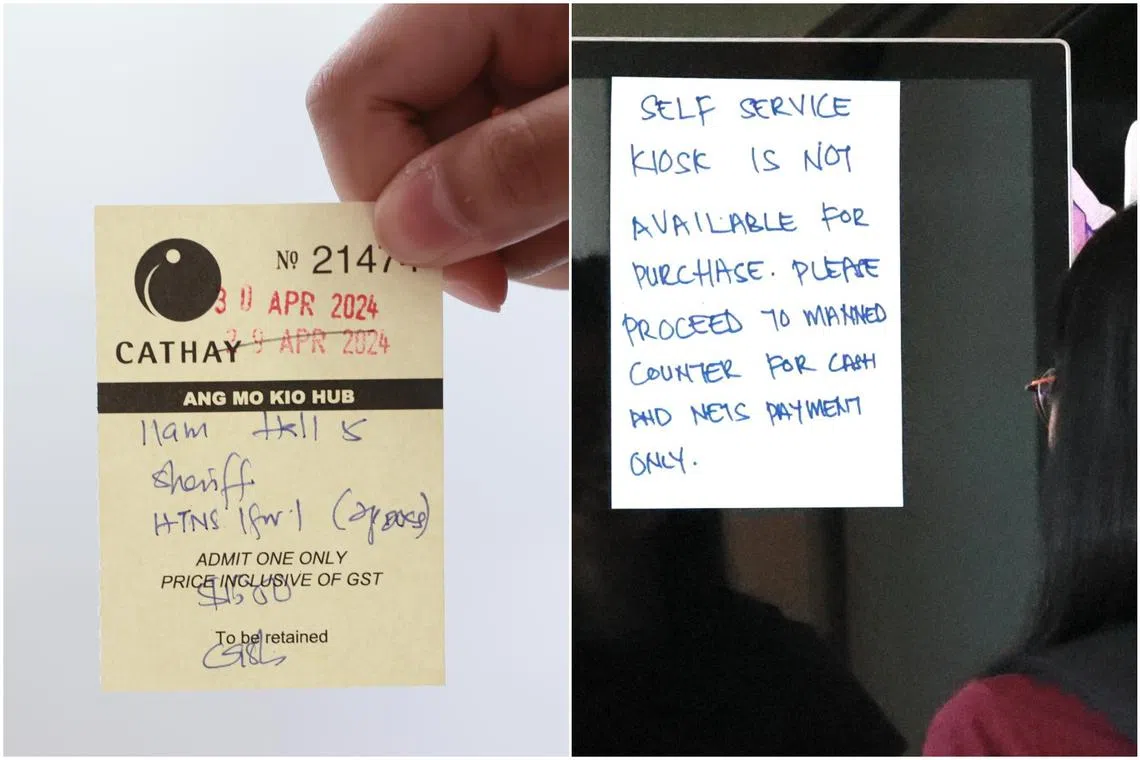 Nº 2147
30 APR 2024
29 APR 2024
CATHAY
ANG MO KIO HUB
11am Hall 5
Sheriff
HTNS 1 for 1
ADMIT ONE ONLY
PRICE INCLUSIVE OF GST
To be retained
SELF SERVICE
KIOSK IS NOT
AVAILABLE FOR
PURCHASE. PLEASE
PROCEED TO MANNED
COUNTER FOR CASH
AND NETS PAYMENT
ONLY.